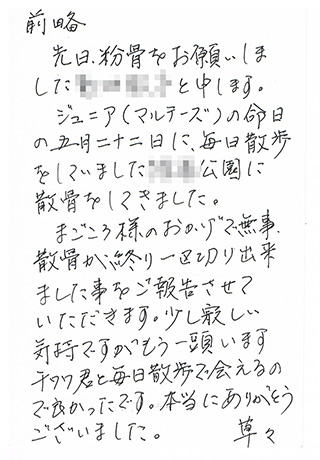 前略
先日、粉骨をお願いしま
したと申します。
ジュニア(マルチーズ)の命日
の五月二十二日に、毎日散歩
をしていました公園に
散骨をしてきました。
まごころ様のおかげで無事、
散骨が、終り一区切り出来
ました事をご報告させて
いただきます。少し寂しい
気持ですがもう一頭います
チワワ君と毎日散歩で会えるの
で良かったです。本当にありがとう
ございました。 草々